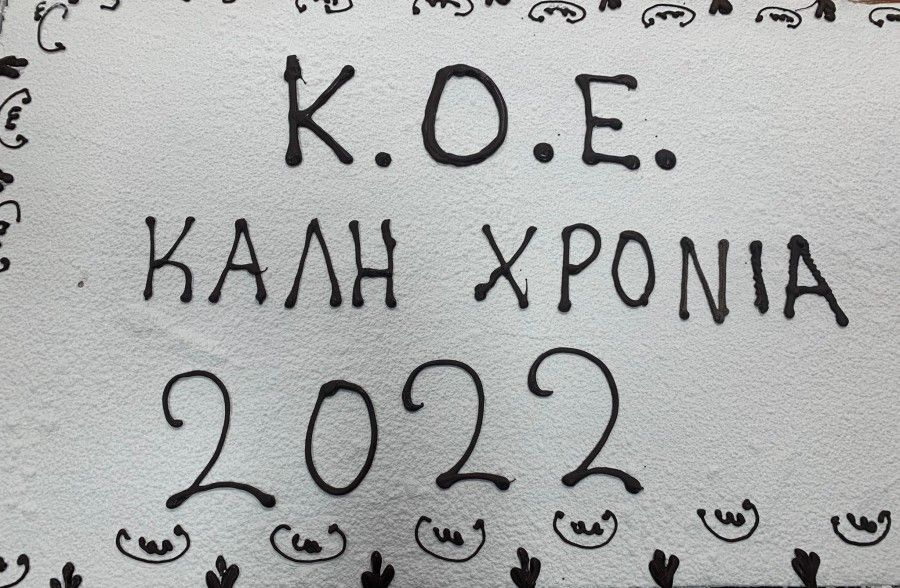 Κ.Ο.Ε.
ΚΑΛΗ ΧΡΟΝΙΑ
2022